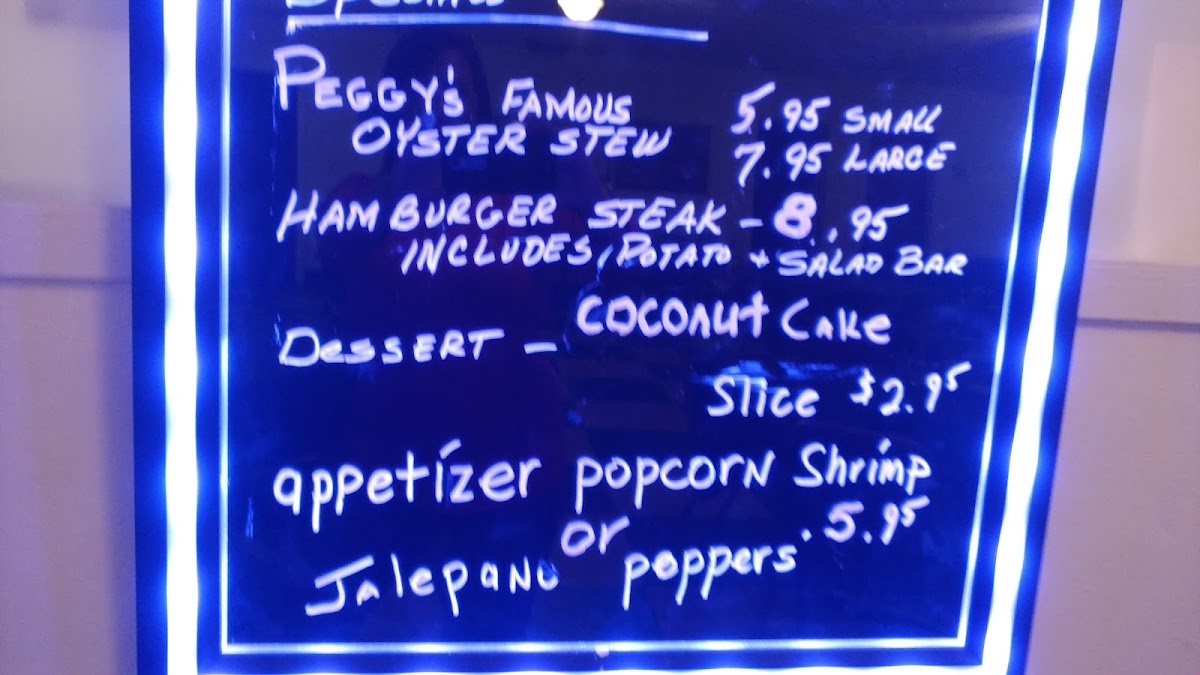 Specials
PEGGY'S FAMOUS 5.95 SMALL
OYSTER STEW 7.95 LARGE
HAMBURGER STEAK - 8.95
INCLUDES, POTATO + SALAD BAR
DESSERT - COCONUT Cake
Slice $2.95
appetizer POPCORN Shrimp
or .5.95
Jalepano poppers